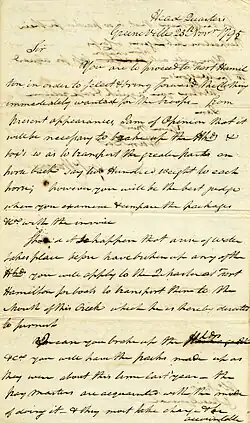 Head Quarters
Greene Ville 25th Novr 1795
Sir
You are to proceed to Fort Hamil
ton in order to select & bring forward the Clothing
immediately wanted for the troops. from
present appearances I am of Opinion that it
will be necessary to break up the Hhds &
box's so as to transport the great packs on
horse back say two Hundred weight to each
horse; however you will be the best judge
when you examine & compare the packages
&c with the invoice
Should it so happen that a rise of water
takes place before you have broken up any of the
Hhds you will apply to the Qr Master at Fort
Hamilton for boats to transport them to the
Mouth of this Creek which he is hereby directed
to promote
you can break up the Hhds
&c you will have the packs made up as
they were about this time last year the
pay Masters are acquainted with the mode
of doing it & they must take charge & be
accountable